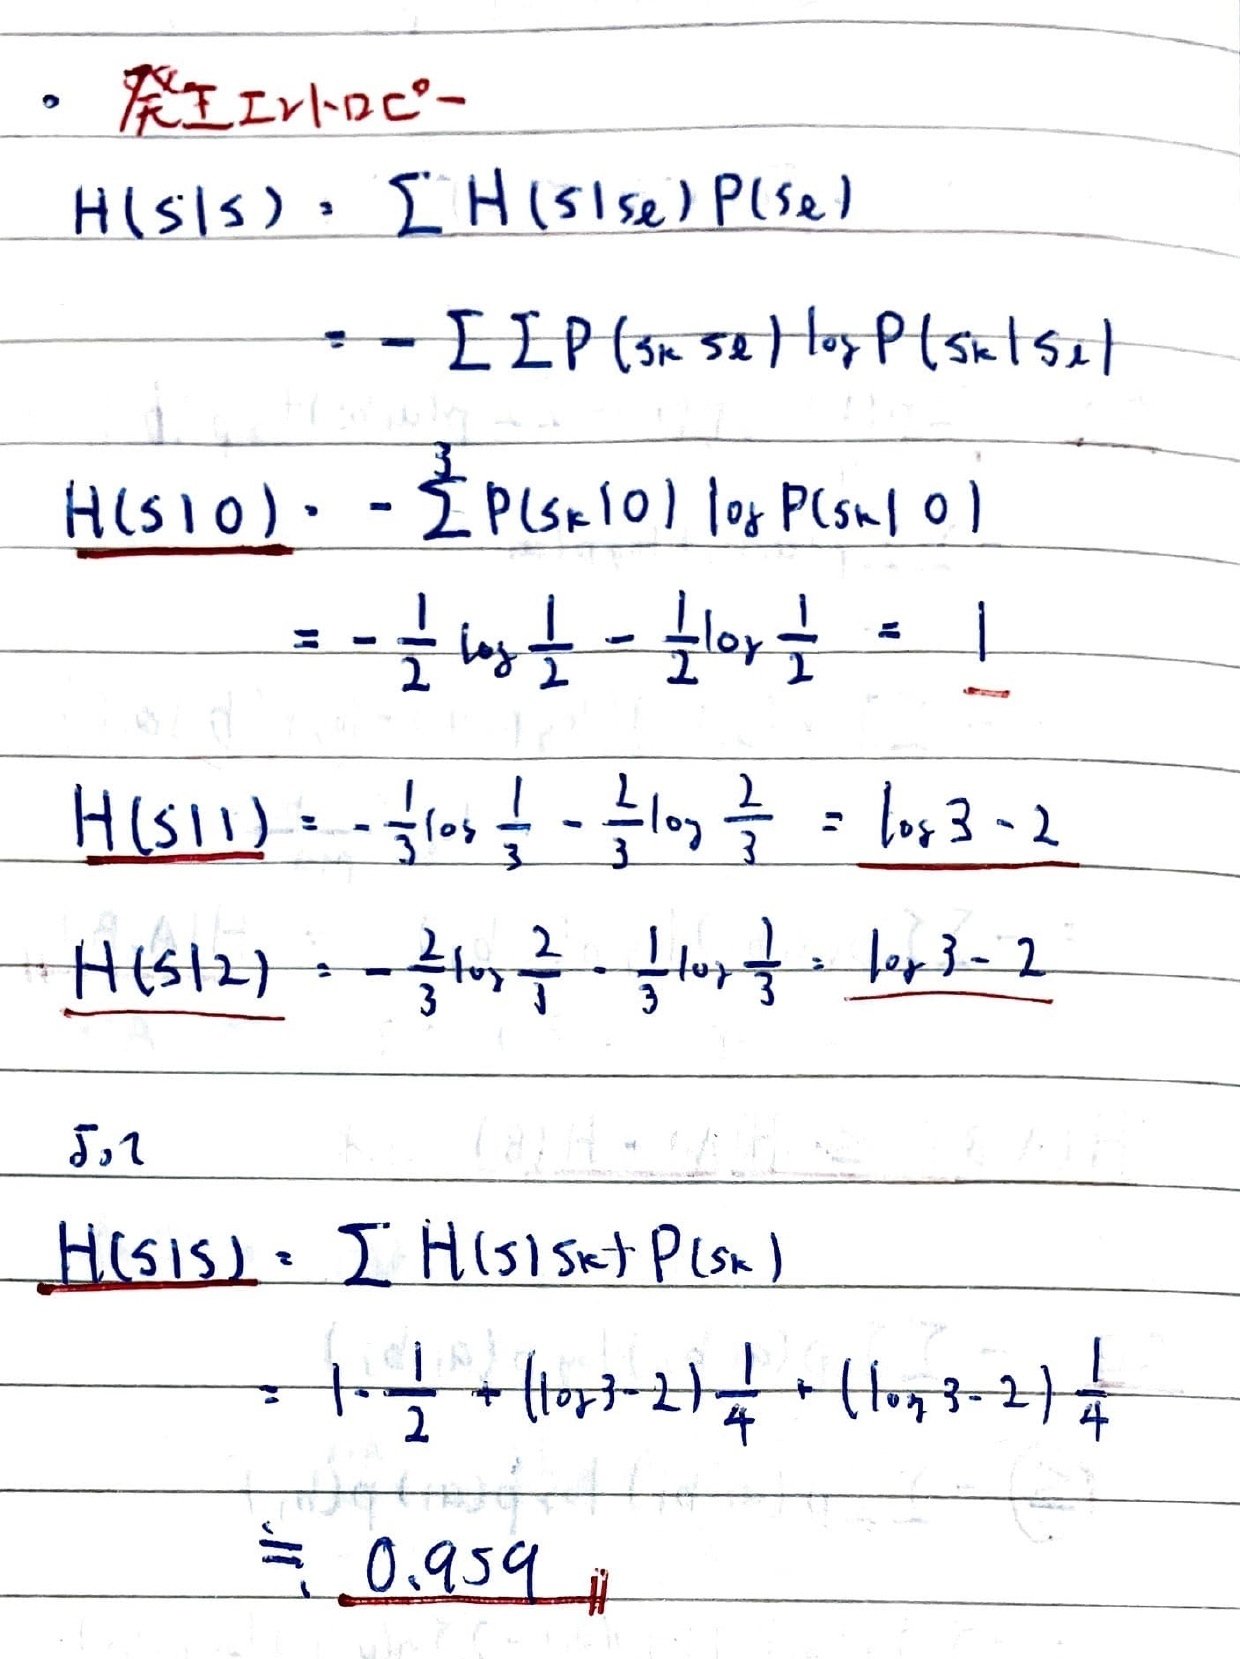 ・発生エントロピー
H(S|S) = Σ H(S|Sℓ) P(Sℓ)
= - Σ Σ P(Sk Sℓ) log P(Sk|Sℓ)
H(S|0) = - Σ^3 P(Sk|0) log P(Sk|0)
= - 1/2 log 1/2 - 1/2 log 1/2 = 1
H(S|1) = - 1/3 log 1/3 - 2/3 log 2/3 = log 3 - 2
H(S|2) = - 2/3 log 2/3 - 1/3 log 1/3 = log 3 - 2
よって
H(S|S) = Σ H(S|Sk) P(Sk)
= 1・1/2 + (log 3 - 2) 1/4 + (log 3 - 2) 1/4
≒ 0.959